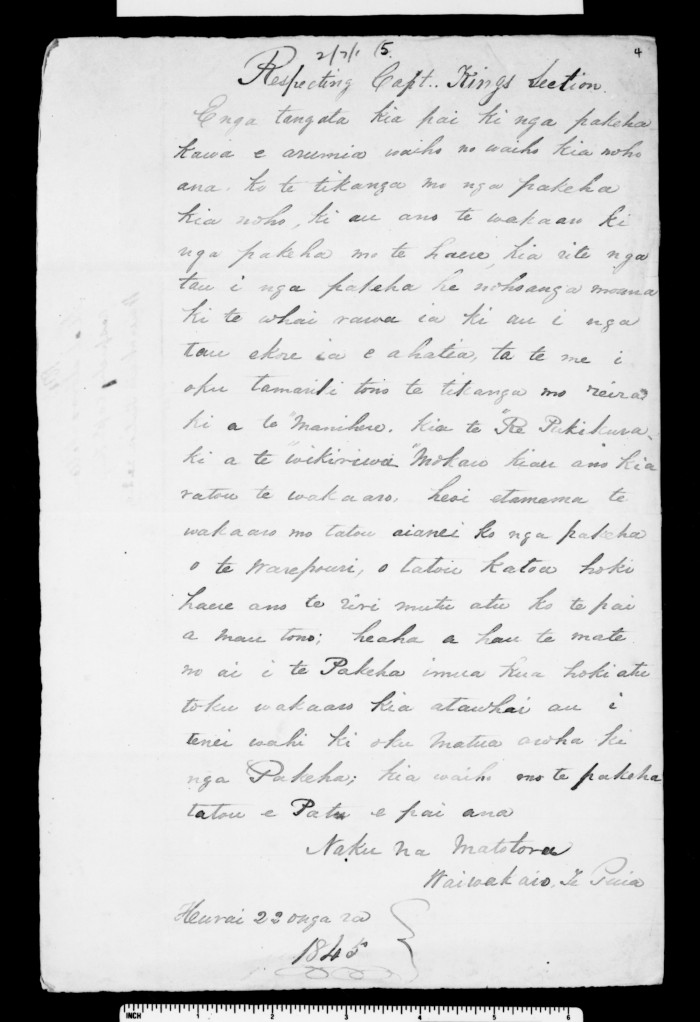 4
Respecting Capt.. Kings Section.
Enga tangata kia pai ki nga pakeha
kawa e arumia waiho no waiho kia noho
ana. ko te tikanga mo nga pakeha
kia noho, ki au ano te wakaaro ki
nga pakeha mo te haere, kia rite nga
tau i nga pakeha he nohoanga moana
ki te whai rawa ia ki au i nga
tau ekore ia e ahatia, ta te me i
oku tamariki tono te tikanga mo reira
ki a te "Manihera. kia te "Re
ki a te "wikiriwa "Mokau kiau ano kia
ratou te wakaaro. heoi etamama te
wakaaro mo tatou aianei ko nga pakeha
o te Warepouri, o tatou katoa hoki
haere ano te riri mutu atu ko te pai
a mau tono; heaha a hau te mate
no ai i te Pakeha imua Kua hoki atu
toku wakaaro kia atawhai au i
tenei wahi ki oku Matua aroha ki
nga Pakeha; kia waiho mo te pakeha
tatou e Patu e pai ana
Naku Na Matotoru
Waiwakaio, Te Puia
Hurai 22 onga ra
1845
INCH 1 2 3 4 5 6